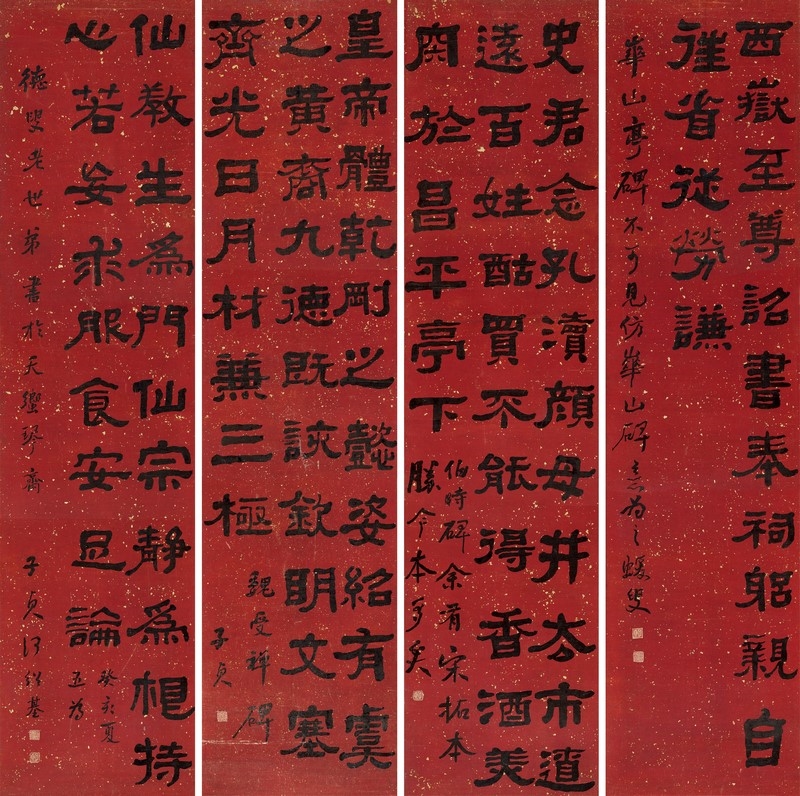 西嶽至尊詔書奉祠躳親自
往省從勞謙
華山亭碑不可見仿華山碑意為之蝯叟
史君念孔瀆顏母井去市遼
遠百姓酤買不能得香酒美
肉於昌平亭下
伯時碑余有宋拓本
勝今本多矣
皇帝體乾剛之懿姿紹有虞
之黃裔九德既該欽明文塞
齊光日月材兼三極
魏受禪碑
子貞
仙教生為門仙宗靜為根持
心若妄求服食安足論
癸亥夏
五為
德叟老世弟書於天琴齋
子貞何紹基